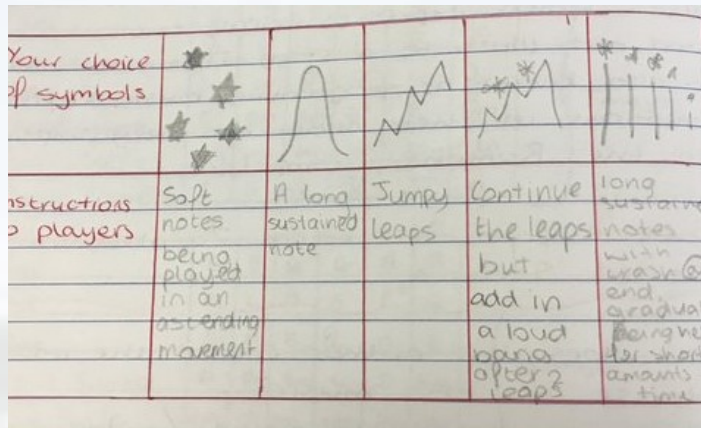 Your choice
of symbols
nstructions
o players
Soft
notes
being
played
in an
ascending
movement
A long
sustained
note
Jumpy
leaps
Continue
the leaps
but
add in
a loud
bang
after 2
leaps
long
sustaine
notes
with
crash @
end,
gradual
being he
for short
amounts
time